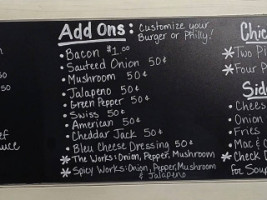 Add Ons: Customize your
Burger or Philly!
• Bacon $1.00
• Sauteed Onion 50¢
• Mushroom 50¢
• Jalapeno 50¢
• Green Pepper 50¢
• Swiss 50¢
• American 50¢
• Cheddar Jack 50¢
• Bleu Cheese Dressing 50¢
* The Works: Onion, Pepper, Mushroom
* Spicy Works: Onion, Pepper, Mushroom
& Jalapeno
ef
auce
Chic
* Two Pi
* Four P
Sid
Chees
Onion
Fries
Mac & C
* Check
for Soup